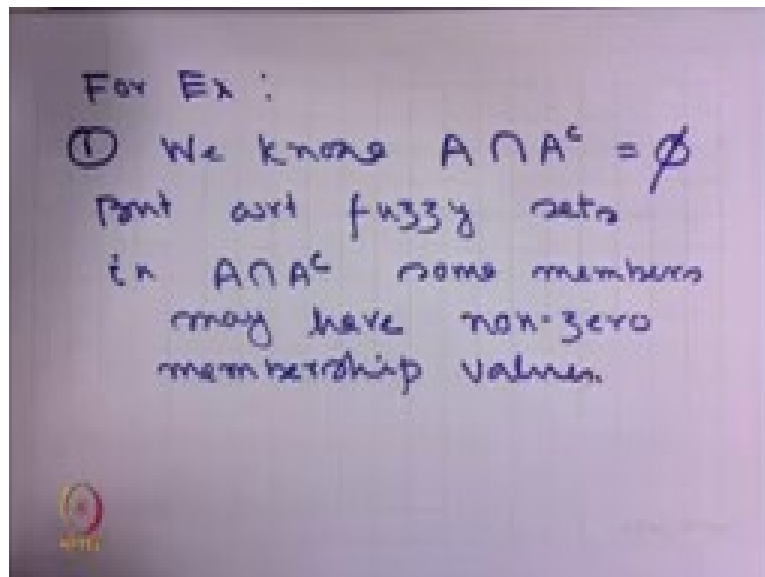 For Ex :
① We know A ∩ Aᶜ = ∅
But wrt fuzzy sets
in A ∩ Aᶜ some members
may have non-zero
membership values.